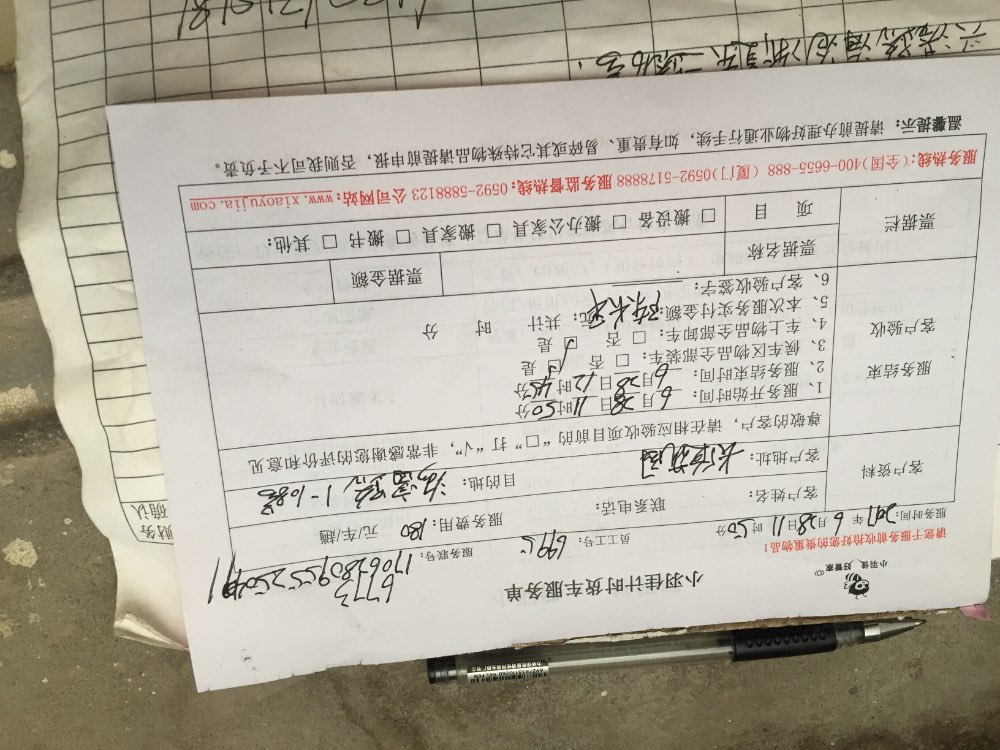 小羽佳 好管家
小羽佳计时货车服务单
请您于服务前收拾好您的贵重物品！
服务时间：2017年 6月28日 11时50分 员工号：6995 服务联号：17062809552504
6773
客户资料
客户姓名： 联系电话： 服务费用 180 元/车/趟
客户地址： 目的地：
尊敬的客户，请在相应验收项目前的“□”打“√”，非常感谢您的评价和意见
服务结束
客户验收
1、服务开始时间：6月28日11时50分
2、服务结束时间：6月28日12时45分
3、候车区物品全部装车：□ 否 □ 是
4、车上物品全部卸车：□ 否 □ 是
5、本次服务实付金额： 元；共计 时 分
6、客户验收签字：
票据栏
票据名称 票据金额
项 目 □ 搬设备 □ 搬办公家具 □ 搬家具 □ 搬书 □ 其他：
服务热线:(全国)400-6655-888 (厦门)0592-5178888 服务监督热线：0592-5888123 公司网站：www.xiaoyujia.com
温馨提示：请提前办理好物业通行手续，如有贵重、易碎或其它特殊物品请提前申报，否则我司不予负责。
财务
确认